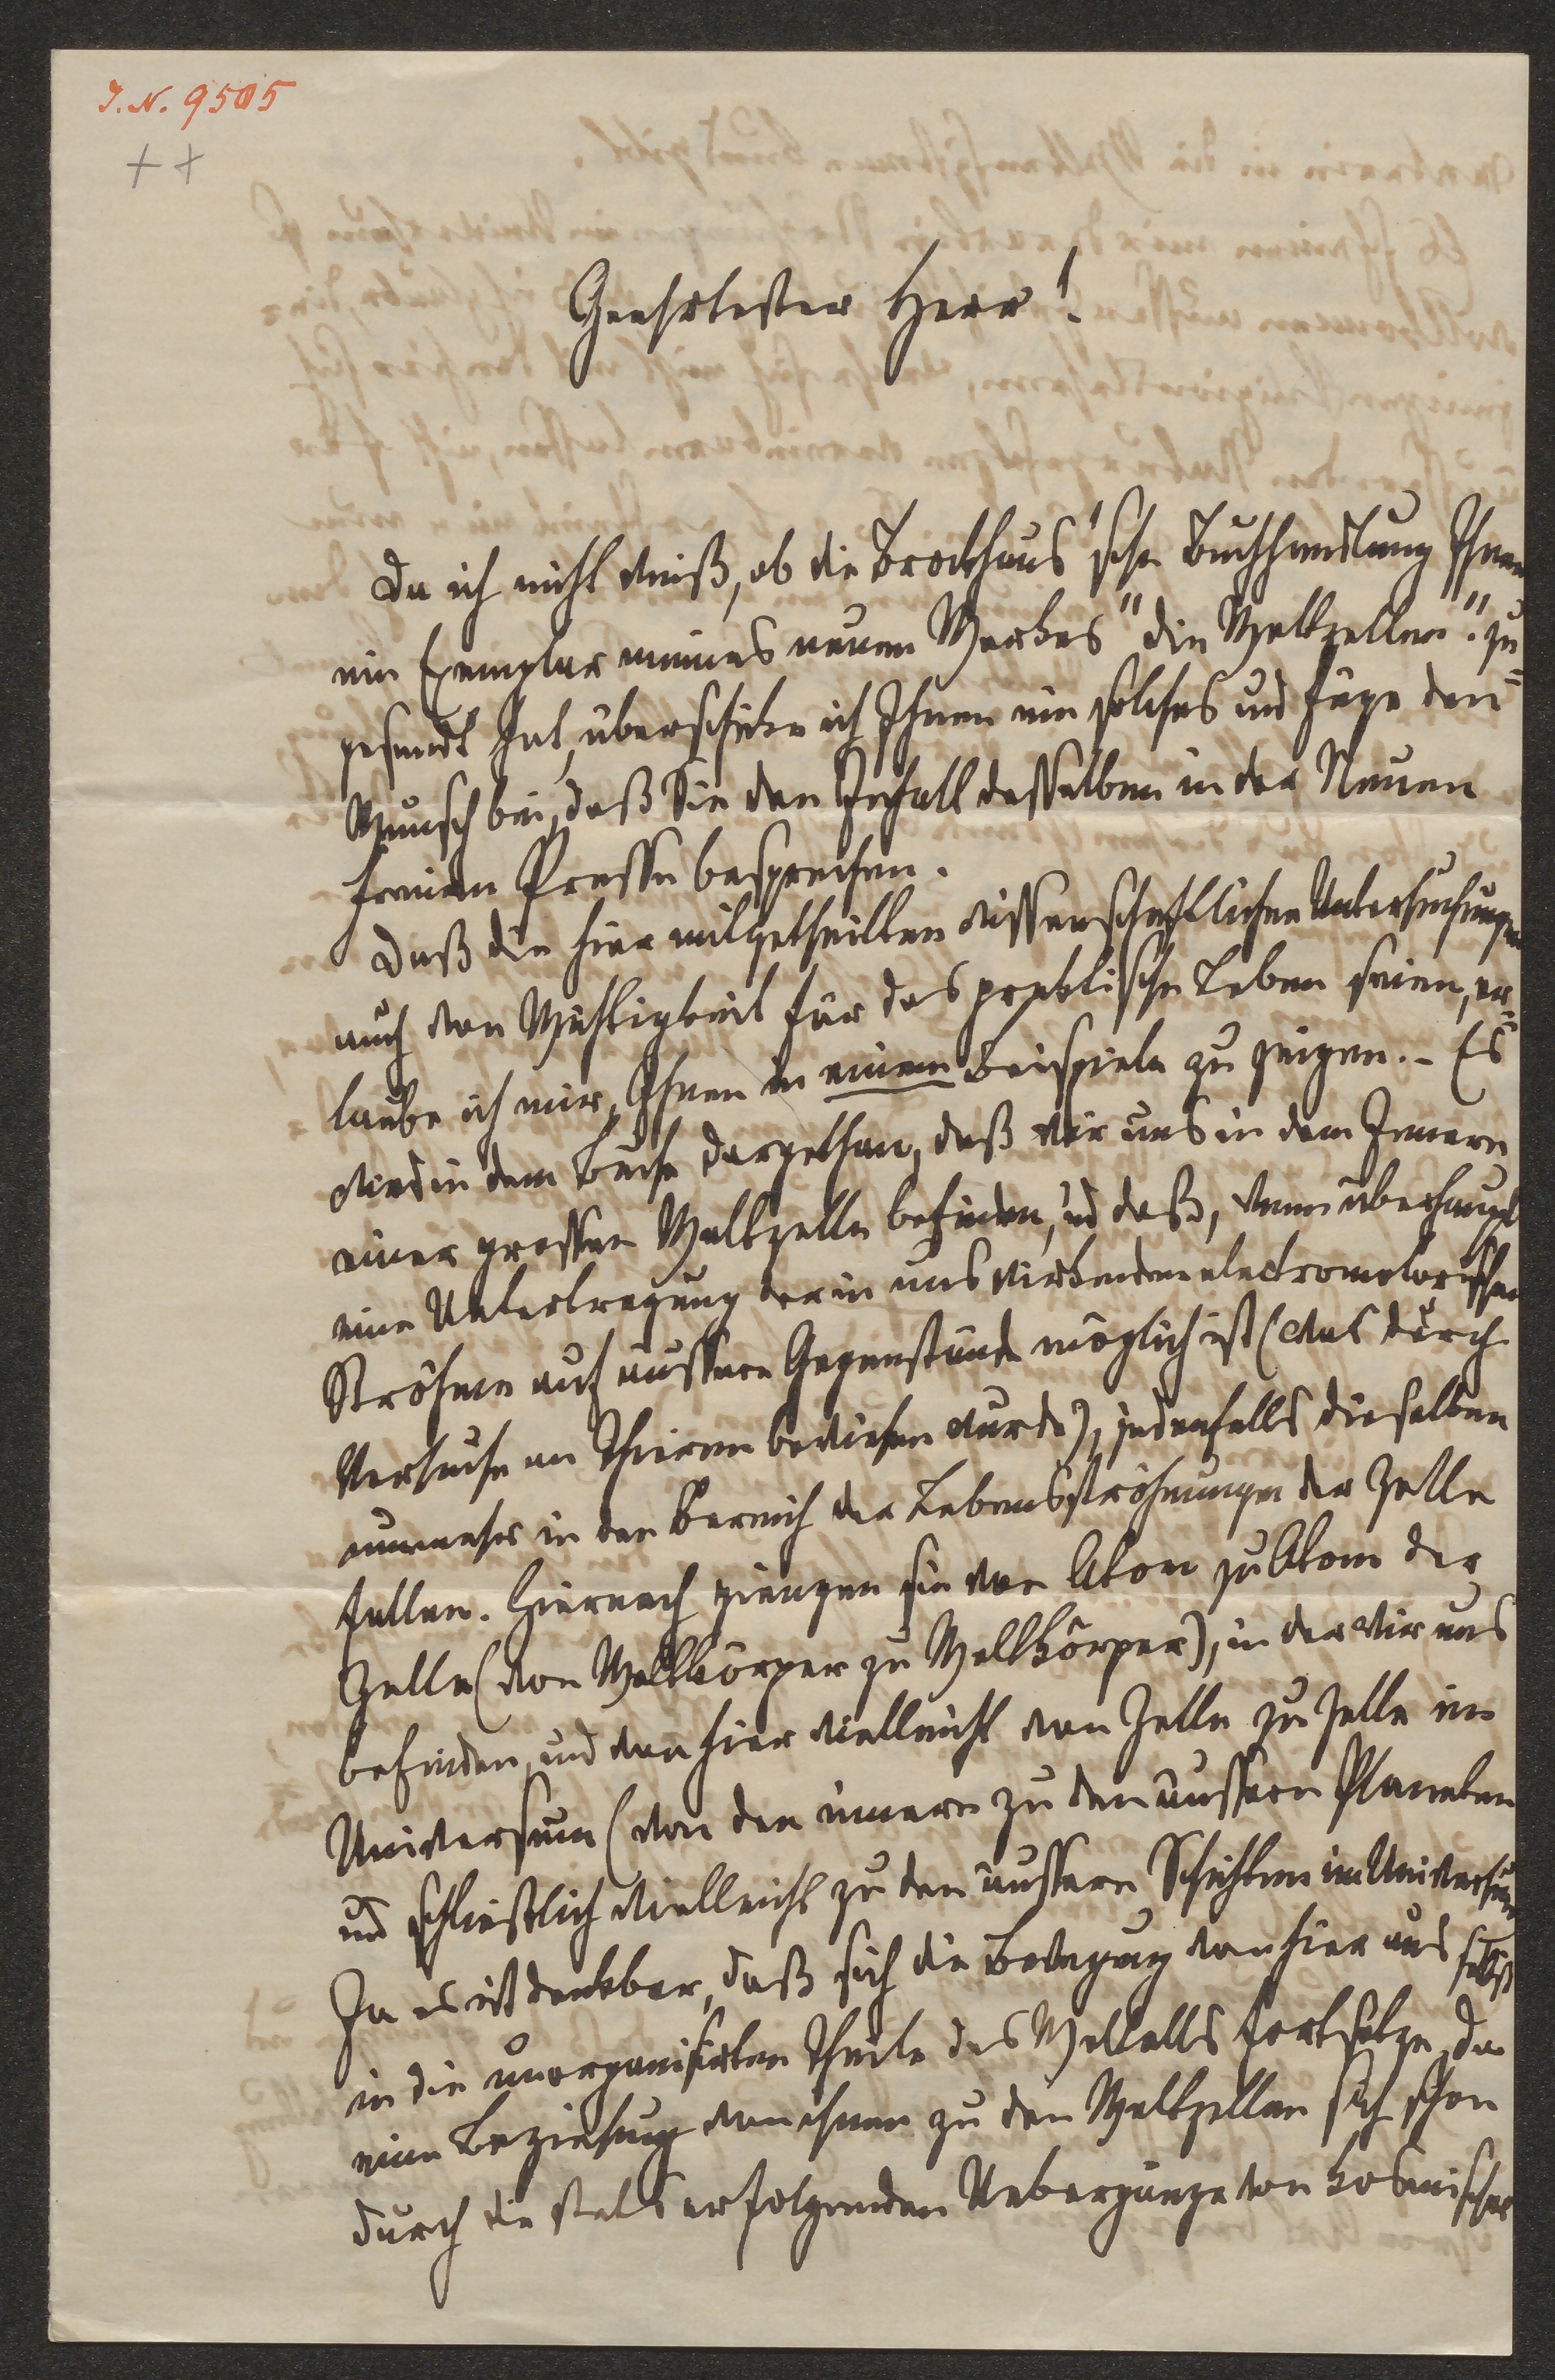 J. N. 9505
++
Geehrtester Herr!
Da ich nicht weiß, ob die Brockhaus'sche Buchhandlung Ihnen
ein Exemplar meines neuen Werkes "die Weltzellen" zu=
gesandt hat, überschicke ich Ihnen ein solches und füge den
Wunsch bei, daß Sie den Inhalt desselben in der Neuen
freien Presse besprechen.
Daß die hier mitgetheilten wissenschaftlichen Untersuchungen
auch von Wichtigkeit für das praktische Leben seien, er-
laube ich mir, Ihnen in einem Beispiele zu zeigen. – Es
wird in dem Buche dargethan, daß wir uns in dem Innern
einer grossen Weltzelle befinden, und daß, wenn überhaupt
eine Uebertragung der in uns wirkenden electromotorischen
Ströhme auf äussere Gegenstände möglich ist (was durch
Versuche an Thieren bewiesen wurde), jedenfalls dieselben
nunmehr in den Bereich der Lebensströhmungen der Zelle
fallen. Hiernach giengen sie von Atom zu Atom der
Zelle (von Weltkörper zu Weltkörper), in der wir uns
befinden, und von hier vielleicht von Zelle zu Zelle im
Universum (von den innern zu den äussern Planeten
und schließlich vielleicht zu den äussern Schichten im Universum
Ja es ist denkbar, daß sich die Bewegung von hier aus selbst
in die unorganisirten Theile des Weltalls fortsetze, da
eine Beziehung von ihnen zu den Weltzellen sich schon
durch die stets erfolgenden Uebergänge von kosmischer